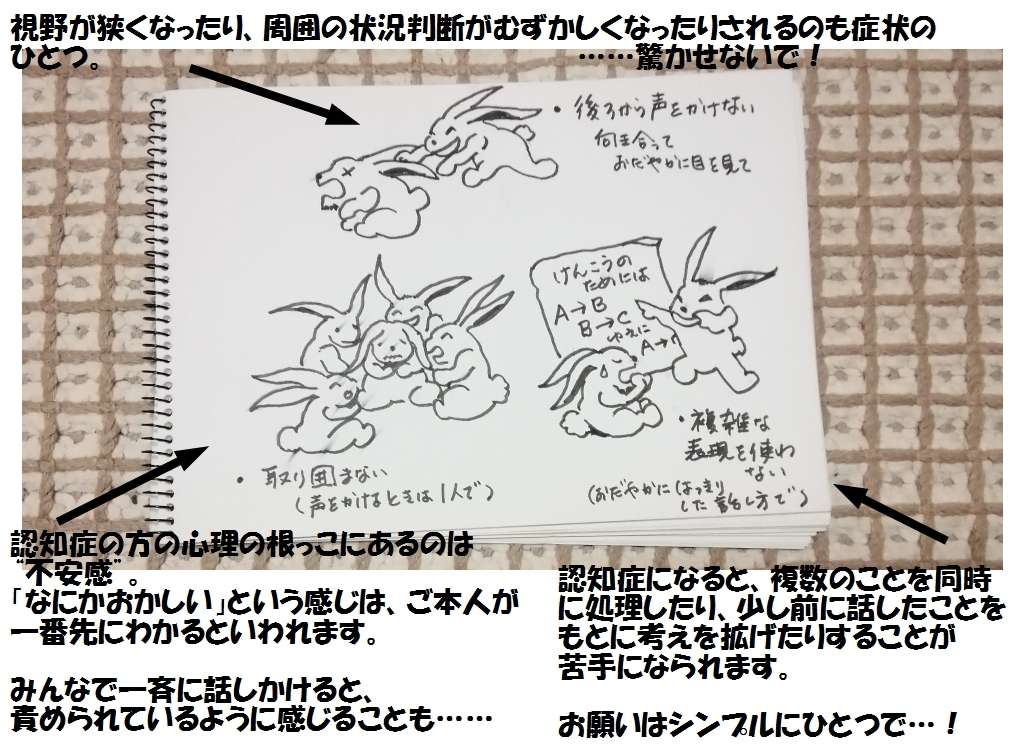 視野が狭くなったり、周囲の状況判断がむずかしくなったりされるのも症状の
ひとつ。　　　　　　　　　　　　……驚かせないで！
・後ろから声をかけない
向き合って
おだやかに目を見て
けんこうの
ためには
A→B
B→C
ゆえに
A→
・取り囲まない
(声をかけるときは1人で)
・複雑な
表現を使わ
ない
(おだやかにはっきり
した話し方で)
認知症の方の心理の根っこにあるのは
“不安感”。
「なにかおかしい」という感じは、ご本人が
一番先にわかるといわれます。
みんなで一斉に話しかけると、
責められているように感じることも……
認知症になると、複数のことを同時
に処理したり、少し前に話したことを
もとに考えを拡げたりすることが
苦手になられます。
お願いはシンプルにひとつで…！